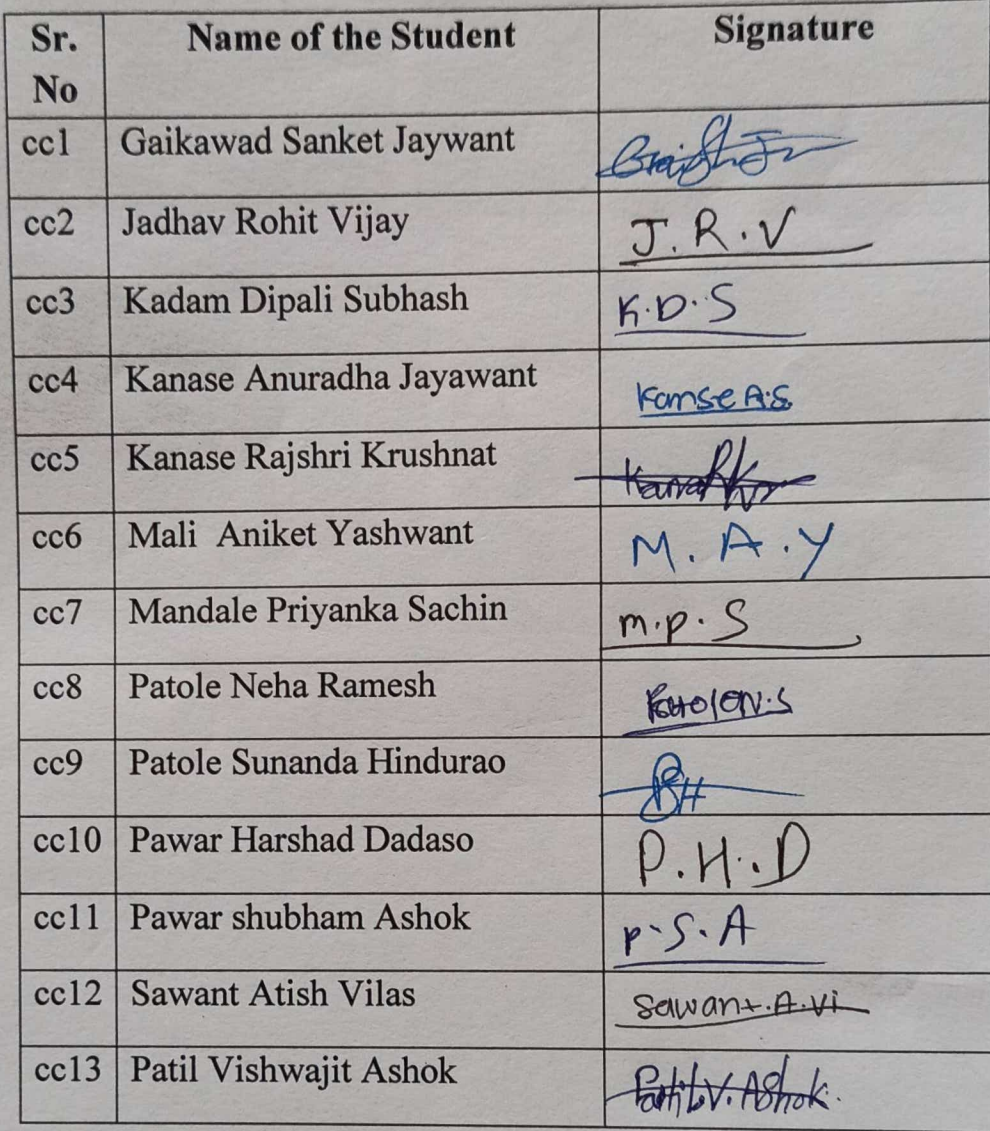 Sr. No Name of the Student Signature
cc1 Gaikawad Sanket Jaywant
cc2 Jadhav Rohit Vijay J.R.V
cc3 Kadam Dipali Subhash K.D.S
cc4 Kanase Anuradha Jayawant Kanse A.S.
cc5 Kanase Rajshri Krushnat
cc6 Mali Aniket Yashwant M.A.Y
cc7 Mandale Priyanka Sachin m.p.S
cc8 Patole Neha Ramesh
cc9 Patole Sunanda Hindurao
cc10 Pawar Harshad Dadaso P.H.D
cc11 Pawar shubham Ashok P.S.A
cc12 Sawant Atish Vilas Sawant.A.Vi
cc13 Patil Vishwajit Ashok Patil V. Ashok.